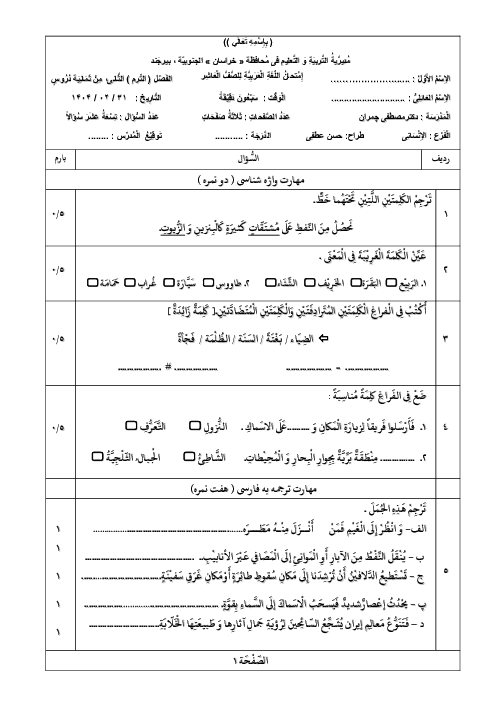 ( بِاِسْمِهِ تَعالی ))
مُدیریَّةُ التَّربیَةِ وَ التَّعلیمِ فی مُحافَظَةِ « خراسان » الجنوبیّة ، بیرجند
اَلاِسْمُ الأوَّلُ : ........................... اِمتِحانُ اللُّغَةِ العَرَبیَّةِ لِلصَّفِّ العاشِر الفَصْل ( التّرم ) الثّانی: مِنْ ثَمانیَة دُرُوسٍ
اَلاِسْمُ العائِلیُّ : ......................... اَلْوَقْت : سَبْعُونَ دَقیقَةً التّاریخ : ۳۱ / ۰۲ / ۱۴۰۴
اَلْمَدْرَسَة : دکترمصطفی چمران عَدَدُ الصَّفَحات : ثَلاثَةُ صَفَحاتٍ عَدَدُ السُّؤال : تِسْعَةُ عَشَرَ سُؤالاً
اَلفَرْع : الإنْسانی طراح: حسن عطفی الدَّرَجة : ............ تَوقیعُ الْمُدَرِّس : ........
ردیف السُّؤال بارم
مهارت واژه شناسی ( دو نمره )
۱ تَرْجِمِ الکَلِمَتَیْنِ اللَّتَیْنِ تَحْتَهُما خَطٌّ. ۰/۵
نَحْصُلُ مِنَ النَّفطِ عَلَی مُشتَقّاتٍ کَثیرَةٍ کَالْبِنزینِ وَ الزُّیوتِ.
۲ عَیِّنْ الْکَلِمَةَ الْغَریْبَةَ فِی الْمَعْنَی . ۰/۵
۱. الرَّبیْع الْبَقَرَة الْخَریْف الشِّتَاء ۲. طاووس سَیَّارَة غُراب حَمَامَة
۳ اُکْتُبْ فِی الفراغِ الْکَلِمَتَیْنِ الْمُتَرادِفَتَیْنِ وَالْکَلِمَتَیْنِ الْمُتَضادَّتَیْنِ.[ کَلِمَةٌ زَائِدَةٌ ] ۰/۵
⇐ الضِیَاء / بَغْتَةً / السَنَة / الظُّلْمَة / فَجْأَةً
................. = ................. ................. # .................
٤ ضَعْ فِی الفَراغِ کَلِمَةً مُناسِبَةً : ۰/۵
۱. فَأَرْسَلوا فَریقاً لِزیارَةِ الْمَکانِ وَ ..........عَلَی الاَسماكِ . النُّزولِ التَّعَرُّفِ
۲. .............. مِنْطَقَةٌ بَرّیَّةٌ بِجِوارِ الْبِحارِ وَ الْمُحیطاتِ. الشَّاطِئُ الْجِبال الثَّلْجیَّةُ
مهارت ترجمه به فارسی ( هفت نمره )
٥ تَرْجِمْ هَذِهِ الجُمَلَ .
الف- وَ انْظُرْ إلَی الْغَیْمِ فَمَنْ أَنْـزَلَ مِنْـهُ مَطَـرَه............................................ ۱
ب - یُنْقَلُ النَّفْطُ مِنَ الآبارِ أوِ الْمَوانِئِ إلَی الْمَصَافی عَبْرَ الأنابیبِ. ................................. ۱
ج - تَسْتَطیعُ الدَّلافینُ أنْ تُرْشِدَنا إلَی مَکانِ سُقوطِ طائِرَةٍ أوْمَکانِ غَرَقِ سَفینَةٍ............................ ۱
پ - یَحْدُثُ إعْصارٌشَدیدٌ فَیَسحَبُ الاَسمَاكَ إلَی السَّماءِ بِقوَّةٍ. ............................................ ۱
د - فَتَنَوُّعُ مَعالِمِ إیران یُشَجِّعُ السّائِحینَ لِرُؤیَةِ جَمالِ آثارِها وَ طَبیعَتِهَا الْخَلّابَةِ............................ ۱
الصَّفْحَة ۱